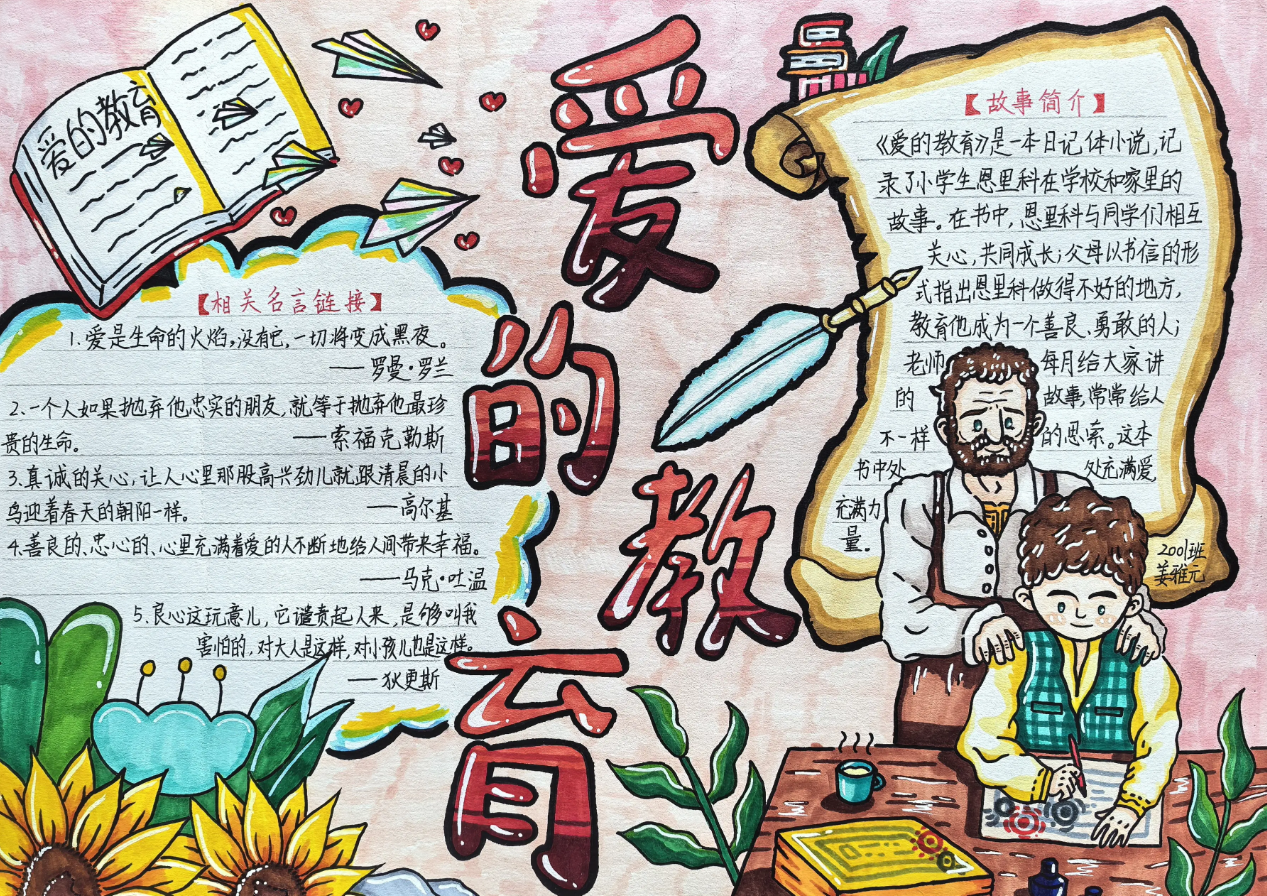 爱的教育
爱的教育
【相关名言链接】
1.爱是生命的火焰,没有它,一切将变成黑夜。
——罗曼·罗兰
2.一个人如果抛弃他忠实的朋友,就等于抛弃他最珍
贵的生命。 ——索福克勒斯
3.真诚的关心,让人心里那股高兴劲儿就跟清晨的小
鸟迎着春天的朝阳一样。 ——高尔基
4.善良的、忠心的、心里充满着爱的人不断地给人间带来幸福。
——马克·吐温
5.良心这玩意儿,它谴责起人来,是够叫我
害怕的,对大人是这样,对小孩儿也是这样。
——狄更斯
【故事简介】
《爱的教育》是一本日记体小说,记
录了小学生恩里科在学校和家里的
故事。在书中,恩里科与同学们相互
关心,共同成长;父母以书信的形
式指出恩里科做得不好的地方,
教育他成为一个善良、勇敢的人;
老师 每月给大家讲
的 故事,常常给人
不一样 的思索。这本
书中处 处充满爱,
充满力
量。
2001班
姜雅元